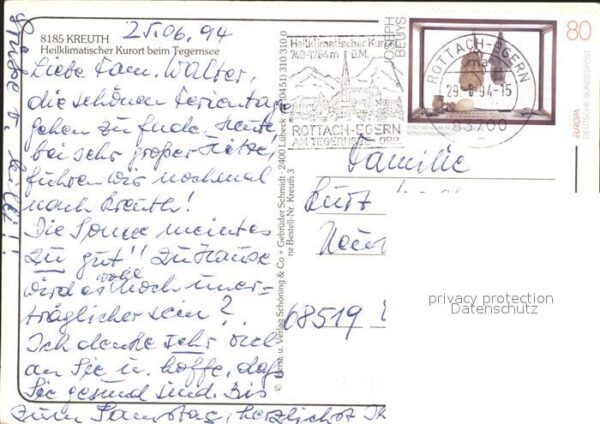 25.06.94
8185 KREUTH
Heilklimatischer Kurort beim Tegernsee
Liebe Fam. Walter,
die schönen Ferientage
gehen zu Ende. Heute
bei sehr großer Hitze,
führen wir nochmal
nach Kreuth!
Die Sonne meint es
zu gut!! Zuhause
wird es wohl noch uner-
träglicher sein?
Ich denke sehr viel
an Sie u. hoffe, daß
Sie gesund sind. Bis
zum Samstag, herzlichst Ih
Grüße v.
Heilklimatischer Kuro
740-1764 m ü.M.
ROTTACH-EGERN
AM TEGERNSEE
ROTTACH-EGERN
29.6.94-15
83700
JOSEPH
BEUYS
80
DEUTSCHE BUNDESPOST
EUROPA
© Herst. u. Verlag Schöning & Co + Gebrüder Schmidt · 2400 Lübeck · (0451) 310 310
Bestell-Nr. Kreuth 3
Familie
Kurt
68519
privacy protection
Datenschutz